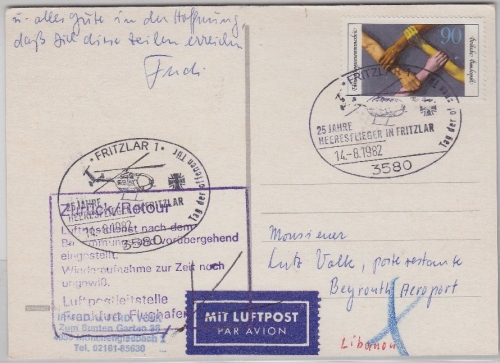 u. alles Gute in der Hoffnung,
daß Dich diese Zeilen erreichen
90
Deutsche Bundespost
FRITZLAR 1
25 JAHRE
HEERESFLIEGER IN FRITZLAR
14.-8.1982
3580
Tag der o
FRITZLAR 1
Tag der offenen Tür
25 JAHRE
HEERESFLIEGER IN FRITZLAR
14.-8.1982
3580
Zurück/Retour
Luftpostdienst nach dem
Bestimmungsland vorübergehend
eingestellt.
Wiederaufnahme zur Zeit noch
ungewiß.
Luftpostleitstelle
Frankfurt Flughafen
Zum Bunten Garten
Tel. 02161-85630
MIT LUFTPOST
PAR AVION
Monsieur
Lutz Volk, poste restante
Beyrouth Aeroport
Libanon